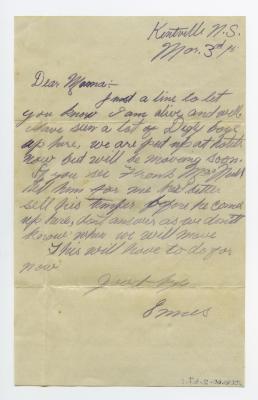 Kintville N.S.
Mar. 3rd
Dear Mamma:-
Just a line to let
you know I am alive and well
I have seen a lot of Digby boys
up here, we are put up at hotels
now but will be moving soon.
If you see Frank
tell him for me he's better
sell his before he comes
up here, don't answer as we don't
know when we will move
This will have to do for
now